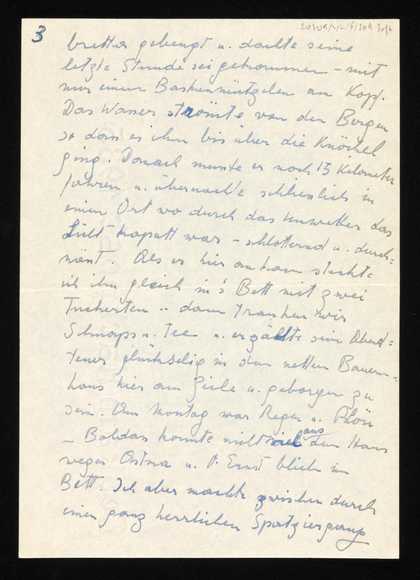 3
bretter gebeugt u. dachte seine
letzte Stunde sei gekommen – mit
nur einem Baskenmützchen am Kopf.
Das Wasser strömte von den Bergen
so dass es ihm bis über die Knöchel
ging. Danach musste er noch 13 Kilometer
fahren u. übernachte schliesslich in
einem Ort wo durch das Unwetter das
Licht kaputt war – schlotternd u. durch-
nässt. Als er hier ankam steckte
ich ihn gleich in's Bett mit zwei
– dann tranken wir
Schnaps u. Tee – u. erzählte sein Aben-
teuer glückselig in dem netten Bauern-
haus hier am Ziele u. geborgen zu
sein. Am Montag war Regen u. Föhn
– konnte nicht aus dem Haus
wegen Astma u. P. Ernst blieb im
Bett. Ich aber machte zwischen durch
einen ganz herrlichen Spatziergang